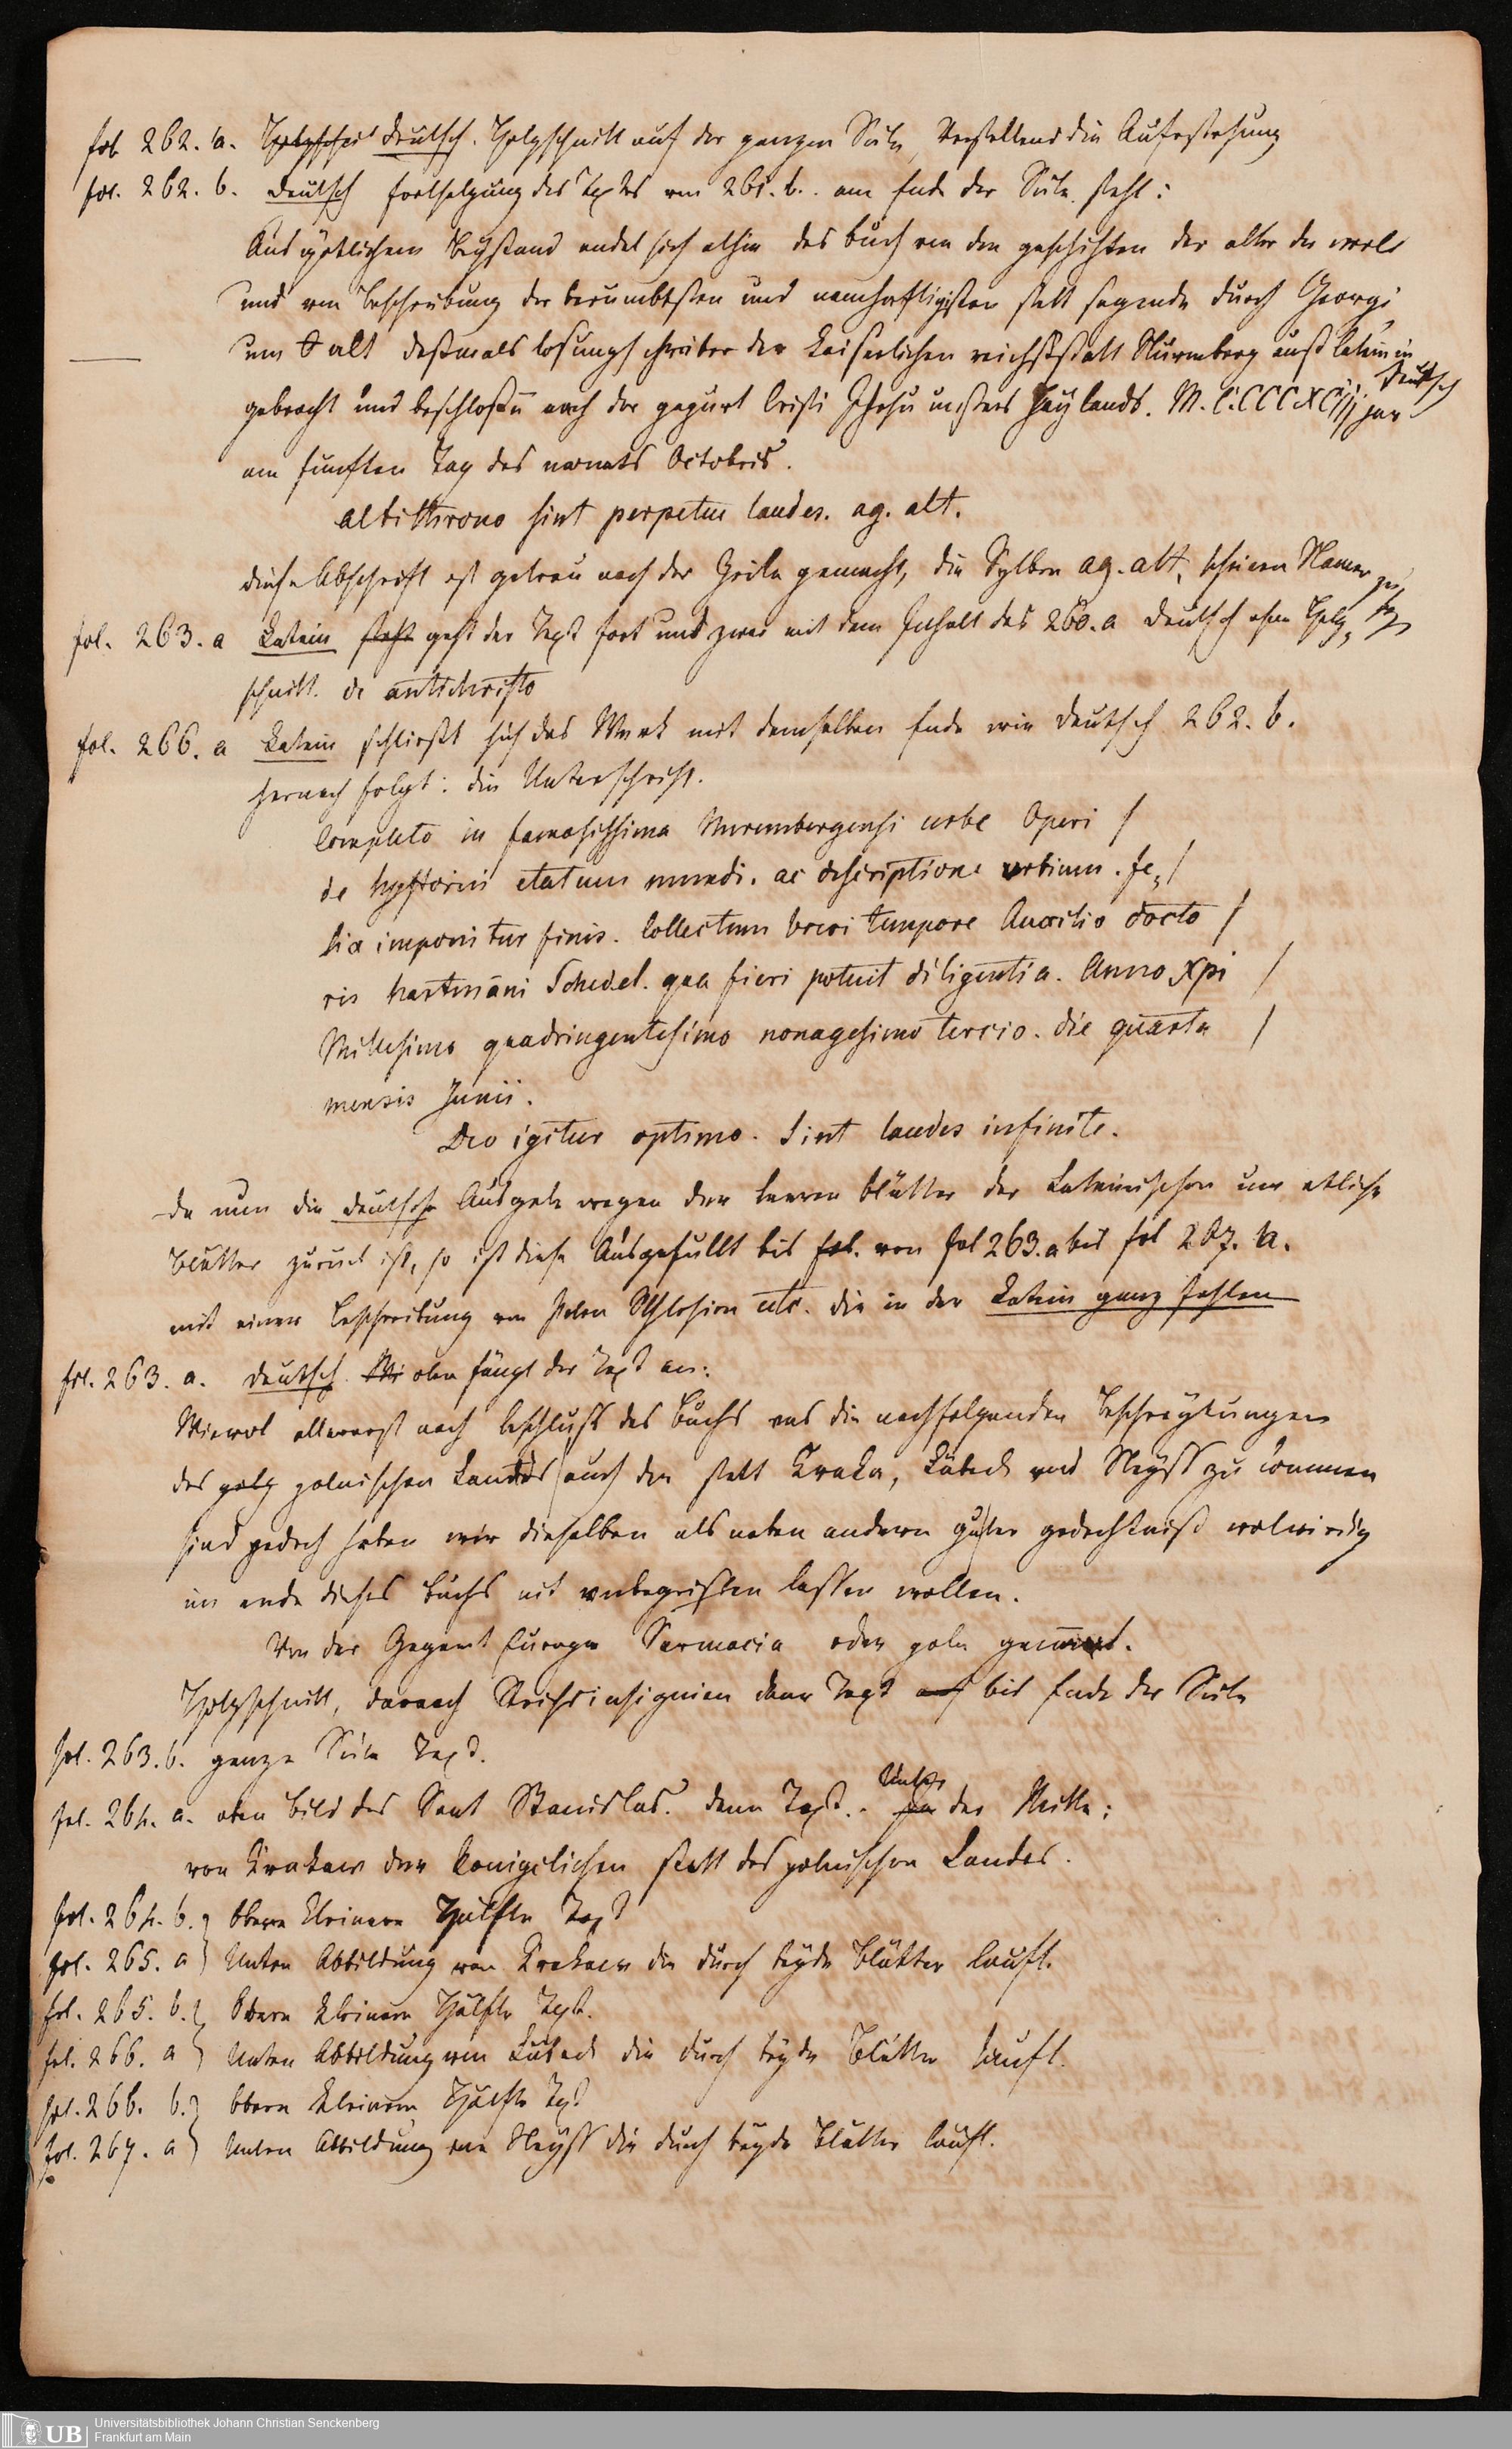 fol. 262. a. Holzschni deutsch. Holzschnitt auf der ganzen Seite, Vorstellend die Auferstehung
fol. 262. b. deutsch fortsetzung des Textes von 261. b. am Ende der Seite steht:
Aus götlichem beystand endet sich alhie das buch von den geschichten der alter der werlt
und von beschreibung der berumbtsten und namhaftigisten stett sagende durch Georgi
um alt deßmals losungschreiber der kaiserlichen reichßstatt Nürmberg auß latein in
deutsch
gebracht und beschlossen nach der gepurt Cristi Jhesu unsers haylands. M. C.CCCXCiij jar
am funften Tag des monats Octobris.
altithrono sint perpetue laudes. ag. alt.
diese Abschrift ist getreu nach der Zeile gemacht, die Sylben ag. alt, scheinen Namen zu
seyn
fol. 263. a Latein steht geht der Text fort und zwar mit dem Inhalt des 260. a deutsch ohne Holz-
schnitt. de antichristo
fol. 266. a Latein schließt sich das Werk mit demselben Ende wie deutsch 262. b.
hernach folgt: die Unterschrift.
Completo in famosissima Nurembergensi urbe Operi /
de hystoriis etatum mundi. ac descriptione urbium. fe= /
lix imponitur finis. Collectum brevi tempore Auxilio docto /
ris hartmāni Schedel. qua fieri potuit diligentia. Anno Xpi /
Millesimo quadringentesimo nonagesimo tercio. die quarto /
mensis Junii.
Deo igitur optimo. sint laudes infinite.
da nun die deutsche Ausgabe wegen den leeren blätter der Lateinischen um etliche
blätter zurück ist, so ist diese Ausgefüllt bis fol. von fol 263. a bis fol 267. a.
mit einer beschreibung von Polen Schlesien etc. die in der Latein ganz fehlen
fol. 263. a. deutsch. Mi oben fängt der Text an:
Wiewol allererst nach beschluß des buchs uns die nachfolgenden beschreybungen
des polnischen Landes auch der stett Kraka, Lübeck und Neyss zu kommen
sind jedoch haben wir dieselben als neben andern guter gedechtniß wolwirdig
im ende dieses buchs nit unbegriffen lassen wollen.
Von der Gegent Europe Sarmacia oder poln genant.
Holzschnitt, darnach Reichsinsignien dann Text auf bis Ende der Seite
fol. 263. b. ganze Seite Text.
fol. 264. a. oben bild des Sant Stanislas. dann Text. Unter der Mitte:
von Krakaw der konigclichen statt des polnischen Landes.
fol. 264. b. } obere kleinere Hälfte Text
fol. 265. a } Unten Abbildung von Krakaw die durch beyde blätter lauft.
fol. 265. b. } Obere kleinere Hälfte Text.
fol. 266. a } Unten Abbildung von Lübeck die durch beyde blätter lauft.
fol. 266. b. } obere kleinere Hälfte Text
fol. 267. a } Unten Abbildung von Neyss die durch beyde blätter lauft.
UB Universitätsbibliothek Johann Christian Senckenberg
Frankfurt am Main